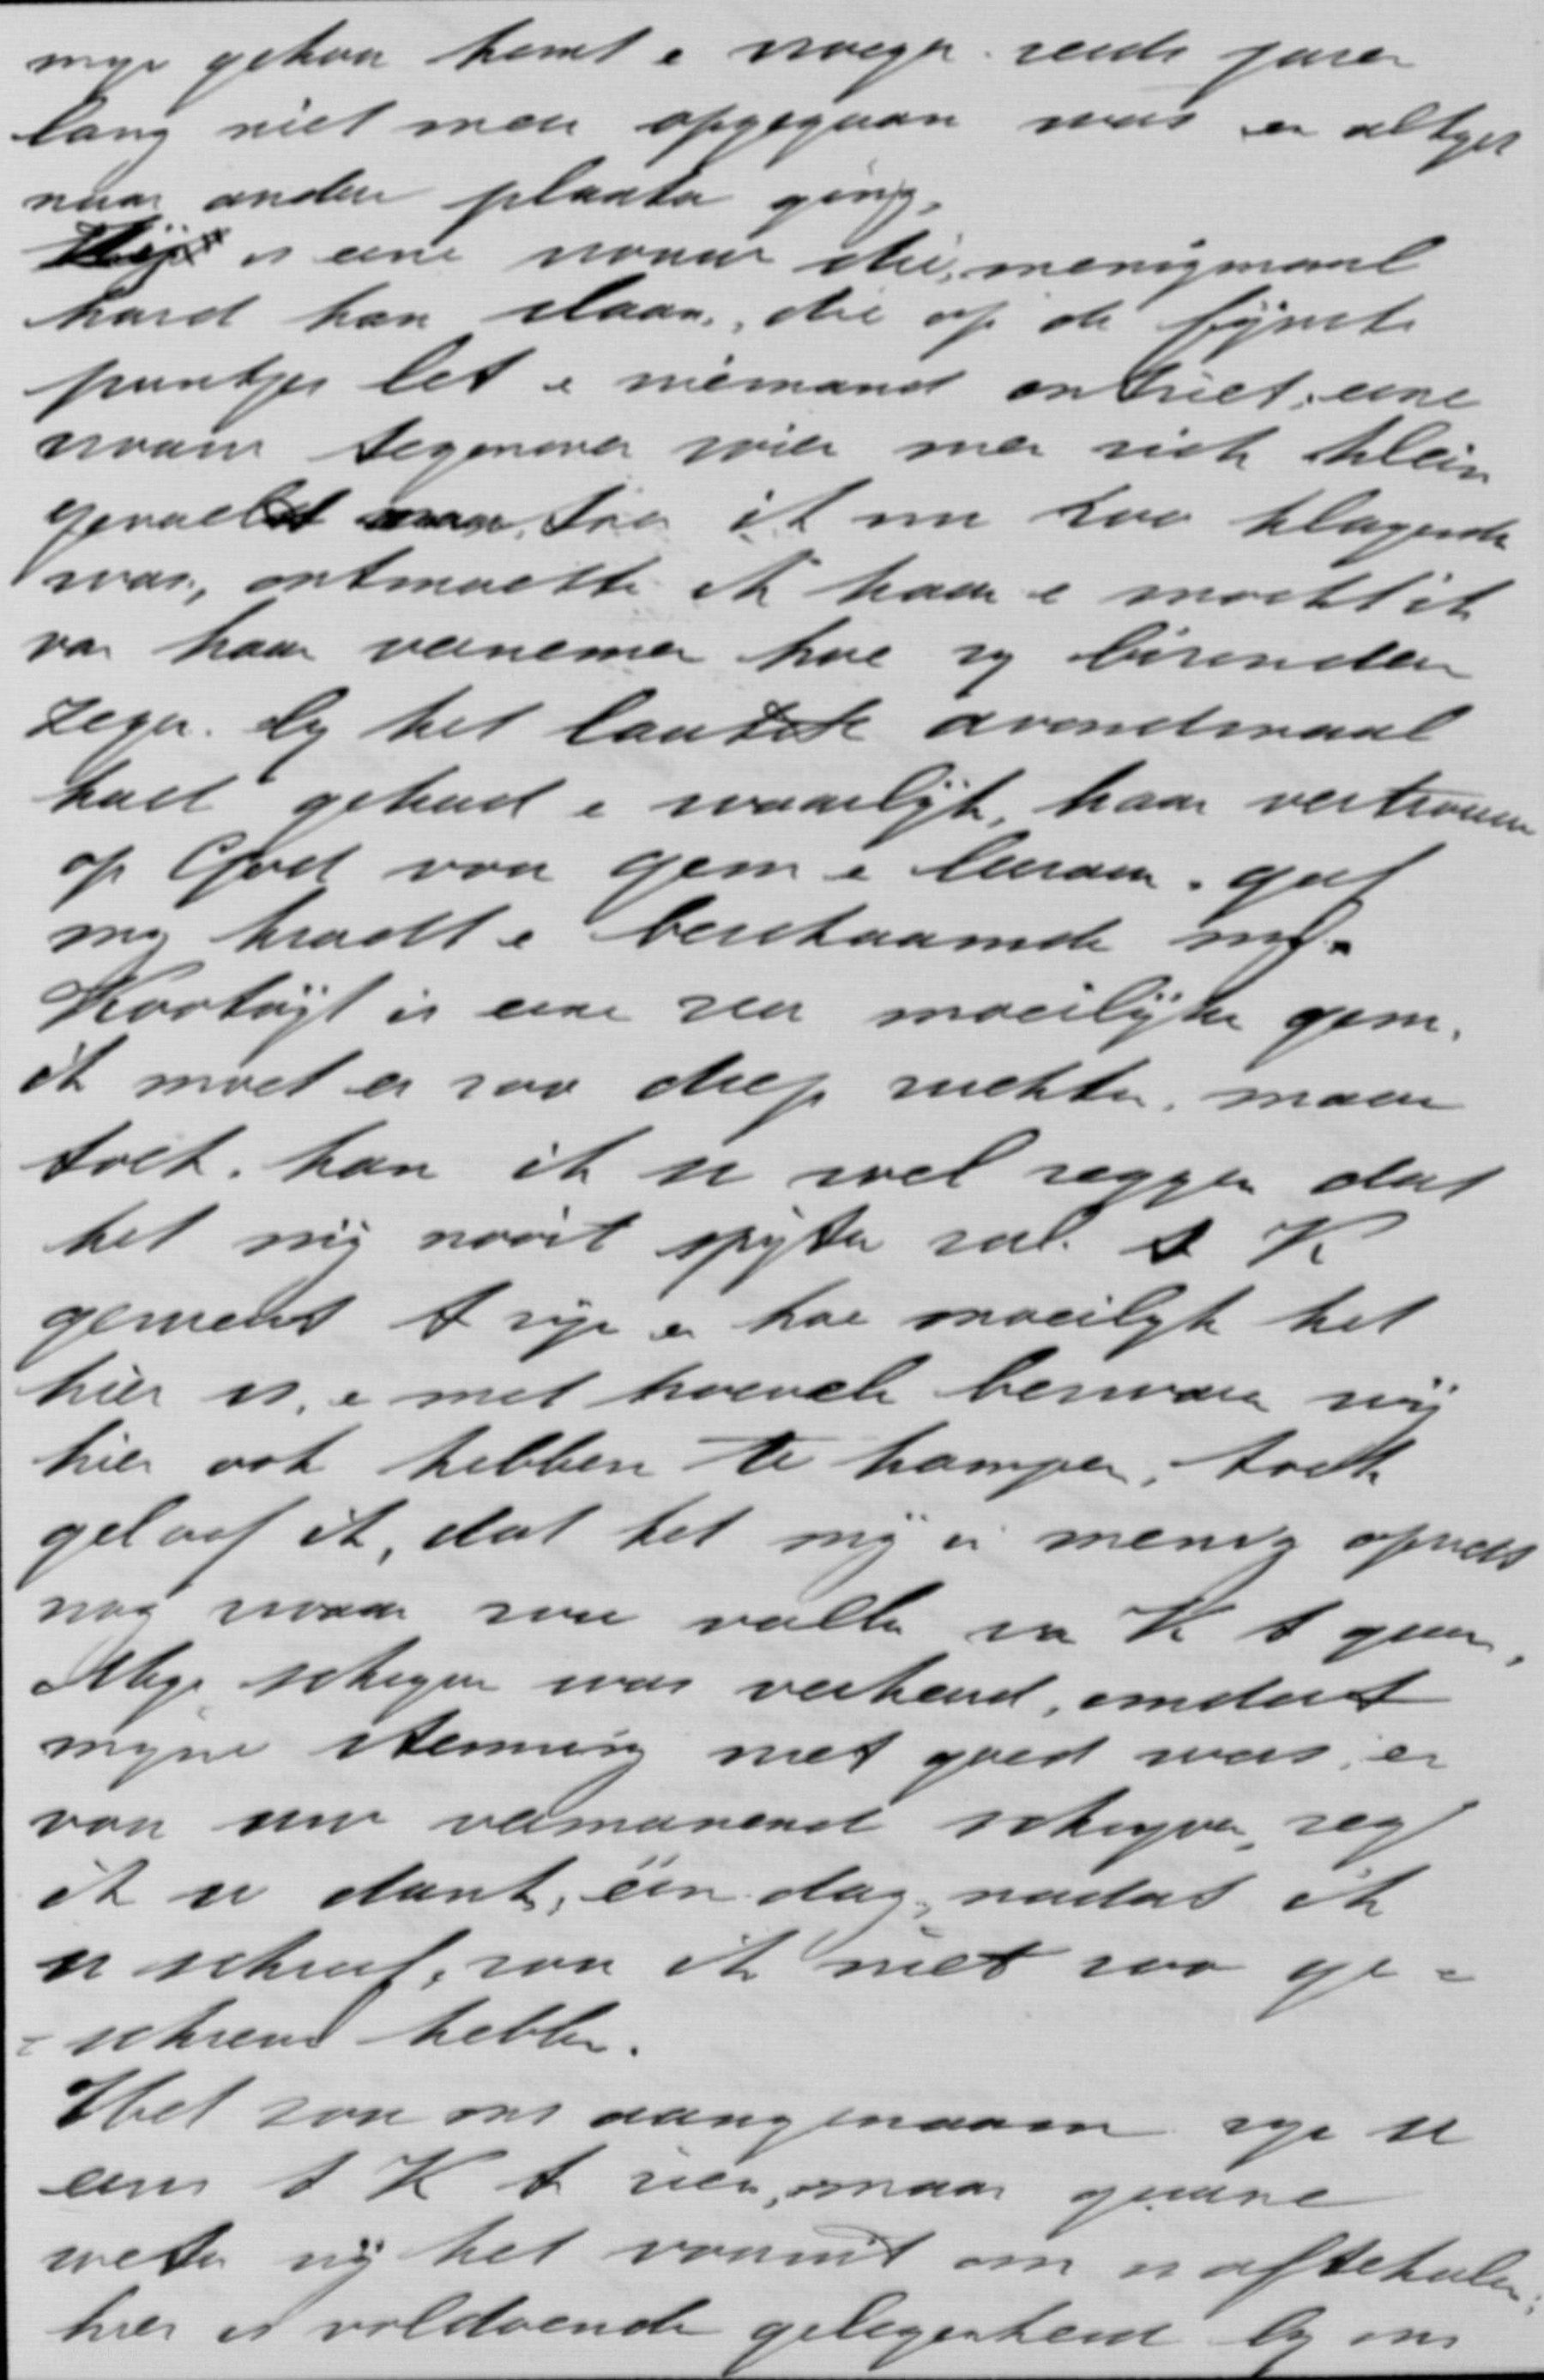 mijn gehoor komt e vroeger reeds jaren
lang niet meer opgegaan was en altijd
naar andere plaatsen ging,
Zij is eene vrouw die menigmaal
hard kan slaan, die op de fijnste
puntjes let e niemand ontziet, eene
vrouw tegenover wier men zich klein
gevoelt. Toen ik nu zoo klagende
was, ontmoette ik haar e mocht ik
van haar vernemen hoe zij bizonderen
zegen bij het laatste avondmaal
had gehad e waarlijk, haar vertrouwen
op God voor gem e leeraar, gaf
mij kracht e beschaamde mij.
Kootwijk is eene zeer moeilijke gem.
ik moet er zoo diep zuchten, maar
toch kan ik u wel zeggen dat
het mij nooit spijten zal te K
gemeent te zijn e hoe moeilijk het
hier is, e met hoevele bezwaren wij
hier ook hebben te kampen, toch
geloof ik, dat het mij in menig opzicht
nog zwaar zou vallen van K te gaan,
Mijn schrijven was verkeerd, omdat
mijne stemming niet goed was, en
voor uw vermanend schrijven, zeg
ik u dank, één dag, nadat ik
u schreef, zou ik niet zoo ge=
=schreven hebben.
Het zou ons aangenaam zijn u
eens te K te zien, maar gaarne
weten wij het vooruit om u aftehalen,
hier is voldoende gelegenheid bij ons